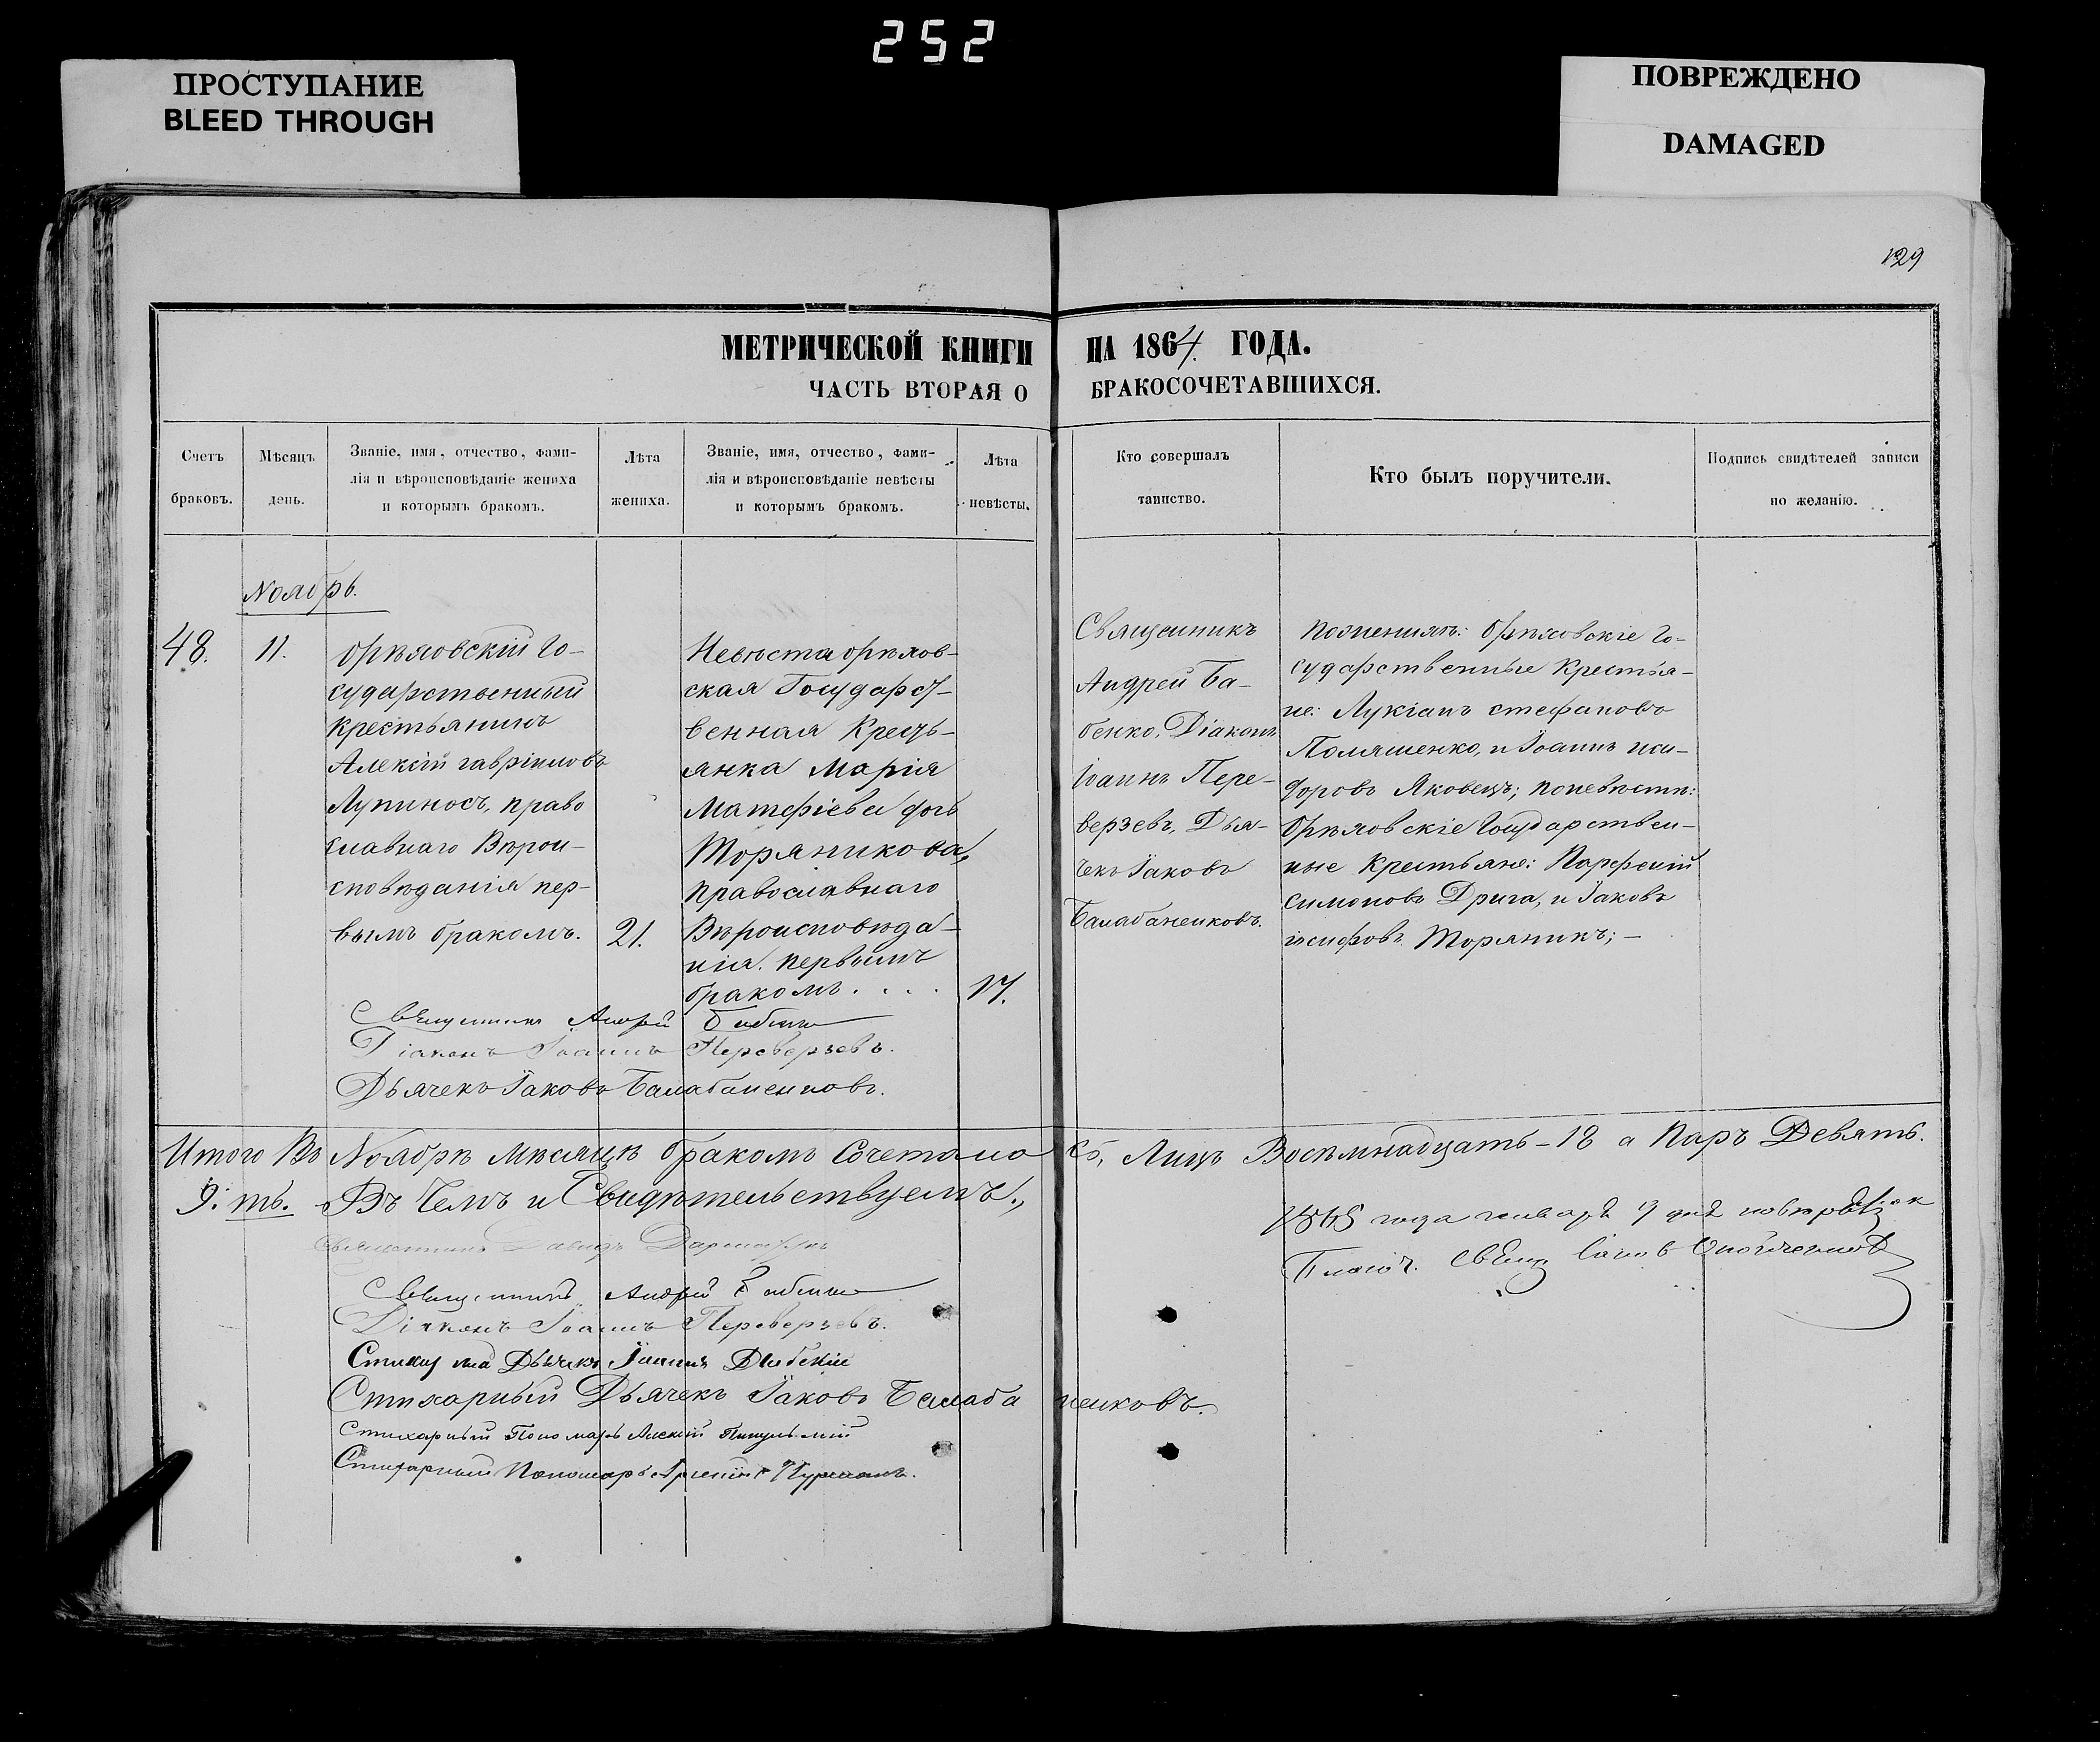 252
ПРОСТУПАНИЕ
BLEED THROUGH
ПОВРЕЖДЕНО
DAMAGED
129
МЕТРИЧЕСКОЙ КНИГИ НА 1864 ГОДА.
ЧАСТЬ ВТОРАЯ О БРАКОСОЧЕТАВШИХСЯ.
Счетъ
браковъ.
Мѣсяцъ
день.
Званіе, имя, отчество, фами-
лія и вѣроисповѣданіе жениха
и которымъ бракомъ.
Лѣта
жениха.
Званіе, имя, отчество, фами-
лія и вѣроисповѣданіе невѣсты
и которымъ бракомъ.
Лѣта
невѣсты.
Кто совершалъ
таинство.
Кто былъ поручители.
Подпись свидѣтелей записи
по желанію.
Ноябрь.
48.
11.
Орѣховскій Го-
сударственный
крестьянинъ
Алексій гавріиловъ
Лупиносъ, право
славнаго Вѣрои-
сповѣданія пер-
вымъ бракомъ.
21.
Невѣста орѣхов-
ская Государст-
венная Кресть-
янка Марія
Матфіева дочь
Торяникова,
православнаго
Вѣроисповѣда-
нія. первымъ
бракомъ. . . .
17.
Священникъ
Андрей Ба-
бенко, Діаконъ
Іоаннъ Пере-
верзевъ, Дья-
чекъ Іаковъ
Балабаненковъ.
Поженихѣ: Орѣховскіе Го-
сударственные Крестья-
не: Лукіанъ стефановъ
и Іоаннъ иси-
доровъ Яковецъ; поневѣстѣ:
Орѣховскіе Государствен-
ные Крестьяне: Парфеній
симоновъ Дрига, и Іаковъ
іосифовъ Торяникъ; —
Священникъ Андрей Бабенко
Діаконъ Іоаннъ Переверзевъ.
Дьячекъ Іаковъ Балабаненковъ.
Итого Въ Ноябрѣ мѣсяцѣ бракомъ Сочетано Лицъ Восѣмнадцать – 18 а Паръ Девять.
9. ть. Въ Чемъ и Свидѣтельствуемъ.,
Священникъ Давидъ
Священникъ Андрей Бабенко
Діаконъ Іоаннъ Переверзевъ.
Дьячекъ Іоаннъ
Стихарный Дьячекъ Іаковъ Балабаненковъ.
Стихарный Пономарь Алексій
Стихарный Пономарь
1865 года января 9 дня
Свящ.